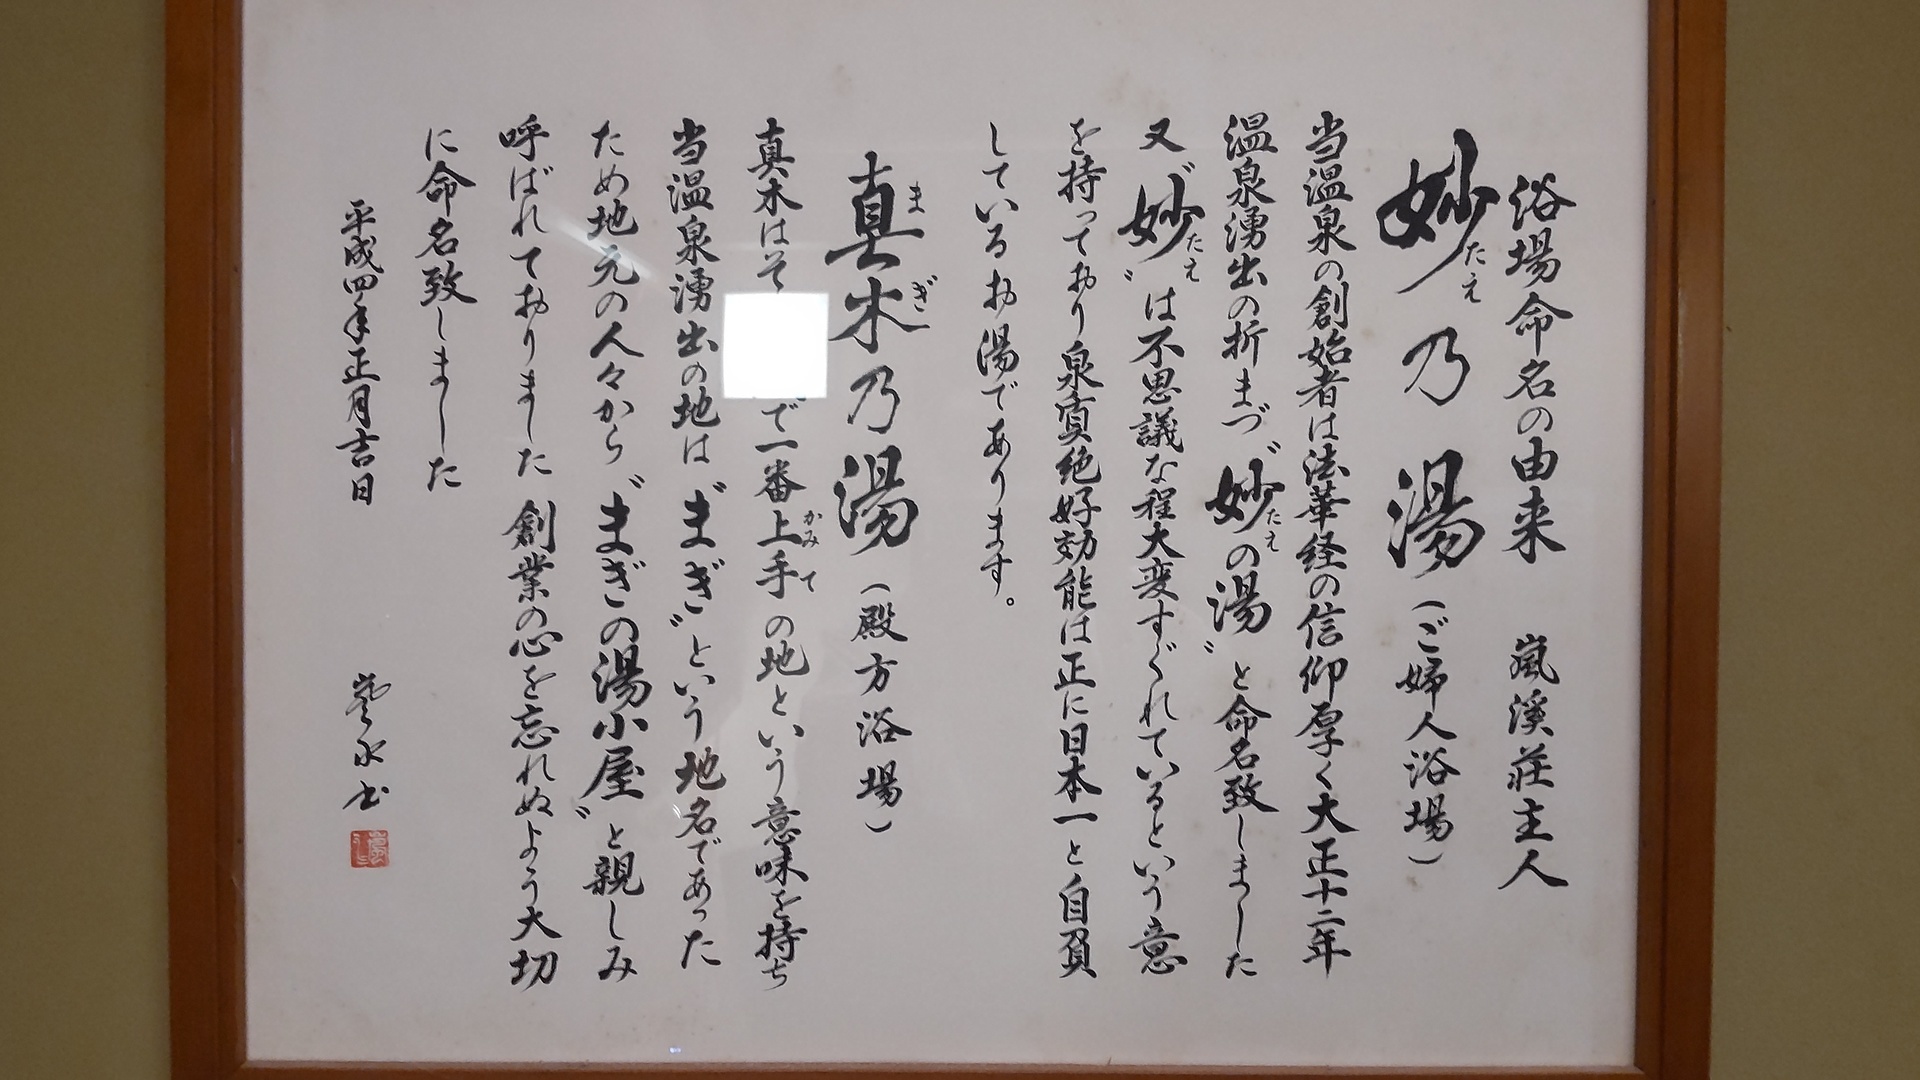 浴場命名の由来　嵐渓荘主人
妙乃湯（ご婦人浴場）
たえ
当温泉の創始者は法華経の信仰厚く大正十二年
温泉湧出の折まづ〝妙の湯〟と命名致しました
たえ
又〝妙〟は不思議な程大変すぐれているという意
たえ
を持っており泉質絶好効能は正に日本一と自負
しているお湯であります。
真木乃湯（殿方浴場）
まぎ
真木はそ
で一番上手の地という意味を持ち
かみて
当温泉湧出の地は〝まぎ〟という地名であった
ため地元の人々から〝まぎの湯小屋〟と親しみ
呼ばれておりました　創業の心を忘れぬよう大切
に命名致しました
平成四年正月吉日